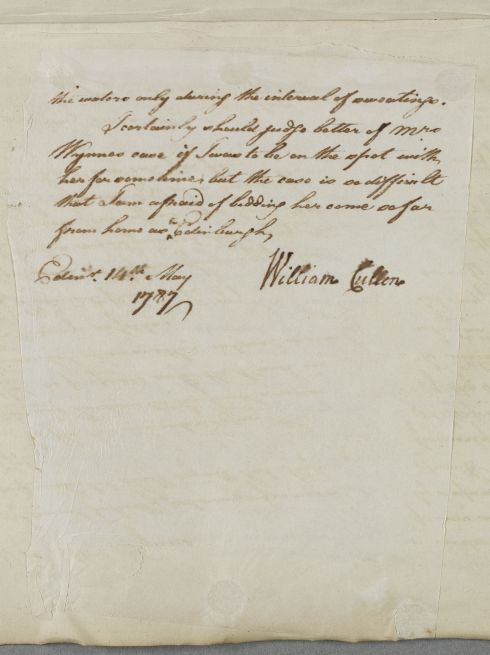 the waters only during the interval of sweatings.
I certainly should judge better of Mrs
Wynnes case if I was to be on the spot with
her for sometime, but the case is so difficult
that I am afraid of bidding her come so far
from home as to Edinburgh,
Edinr. 14th May
1787
William Cullen